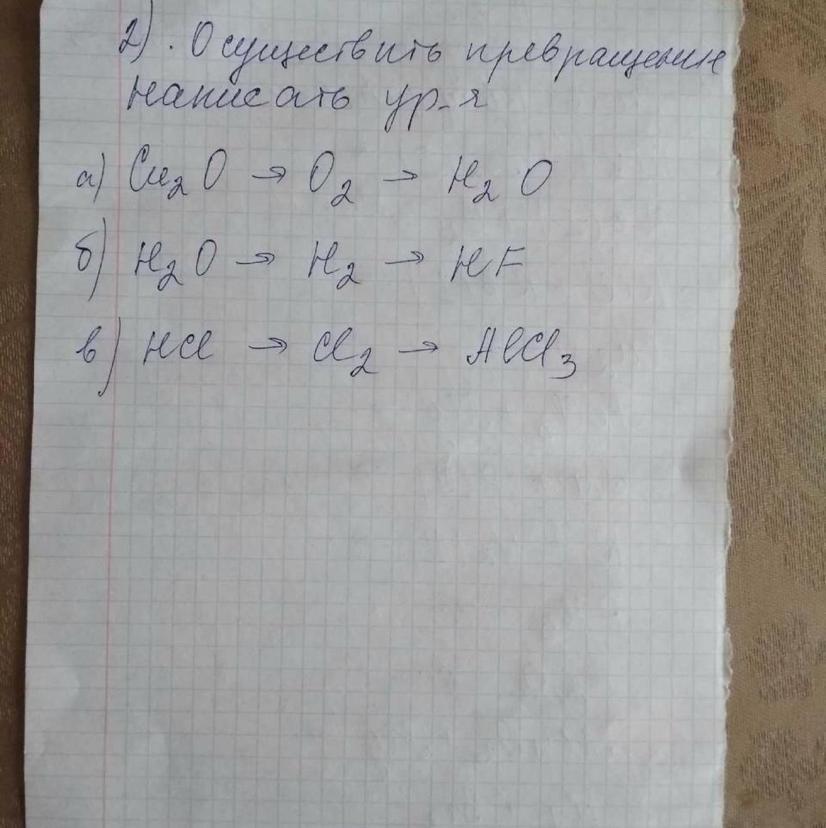 2). Осуществить превращения
написать ур-я
а) Cu₂O → O₂ → H₂O
б) H₂O → H₂ → HF
в) HCl → Cl₂ → AlCl₃